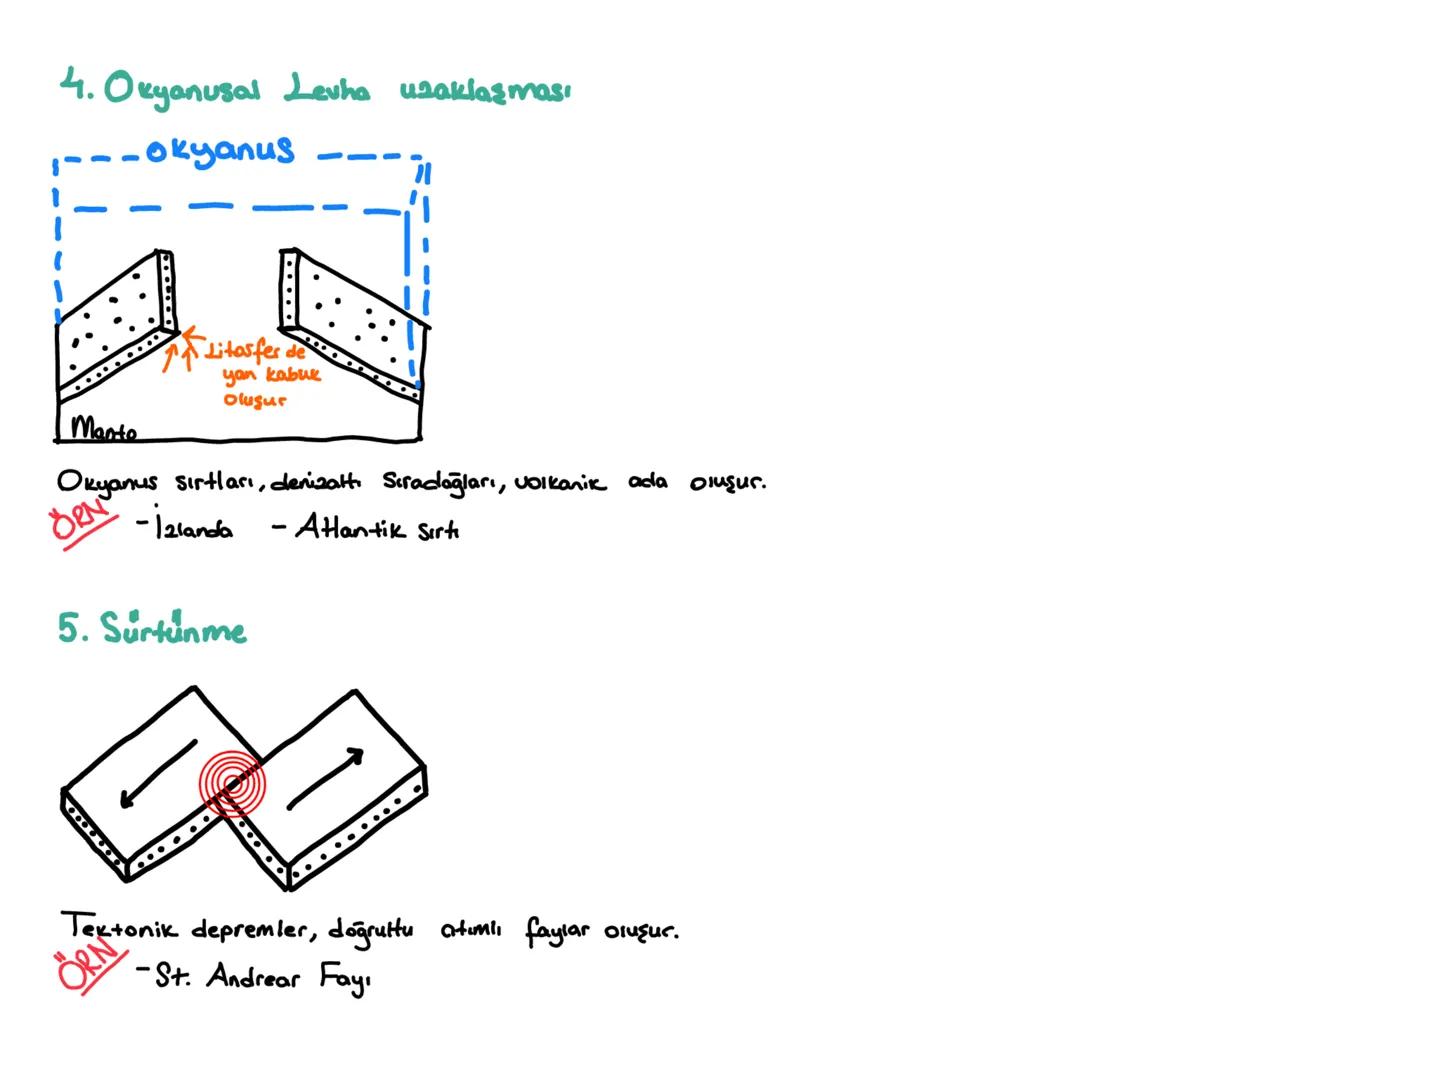 4. Okyanusal Levha uzaklaşması
okyanus
Litosfer de
yan kabuk
oluşur
Manto
Okyanus sırtları, denizaltı Sıradağları, volkanik ada oluşur.
ÖRN -İzlanda - Atlantik Sırtı
5. Sürtünme
Tektonik depremler, doğrultu atımlı faylar oluşur.
ÖRN -St. Andrear Fayı